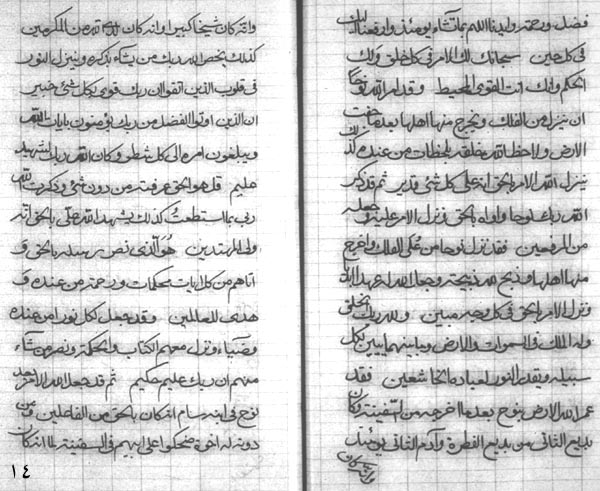 فضل ورحمة الله بما تشاء يومئذ وارفعنا اليك
فى كل حين سبحانك لك الامر فى كل خلق ولك
الحكم وانك انت القوى المحيط وقد امر الله نوحا
ان ينزل من الفلك ويخرج منها اهلها بعدما
الارض ولاحظ الله خلقه بلحظات من عنده
ينزل الله الامر بالحق انه على كل شئ قدير ثم قد ذكر
الله ربك لوحا واواه بالحق نزل الامر عليه وجعله
من المرفعين فقد نزل نوحا من الفلك واخرج
منها اهلها وذبح لله ذبيحته وجعل الله له عهدا
ونزل الامر بالحق فى كل وجه مبين ولله ربك الخلق
وله الملك فى السموات والارض وما بينهما يبين لكل
سبيله ويقدر النور لعباده الخاشعين فقد
عمر الله الارض بنوح بعدما اخرجه من السفينة وكان
بديع الثانى من بديع الفطرة وآدم الثانى يومئذ
وانه كان
وانه كان شيخا كبيرا وانه كان لله من المكرمين
كذلك يختص الله ربك من يشاء بذكره وينزل النور
فى قلوب الذين اتقوا ان ربك قوى بكل شئ خبير
ان الذين اوتوا الفضل من ربك يؤمنون بايات الله
ويبلغون امره الى كل شطر وكان الله ربك لشهيد
عليم قل هو الحق عرفته من دون شئ وذكرت الله
ربى بما استطعت كذلك يشهد الله على بالحق انه
ولى المهتدين هو الذى نصر رسله بالحق و
اتاهم من كل ايات محكمات ورحمة من عنده و
هدى للعالمين وقد جعل لكل نورا من عنده
وضياء ونزل معهم الكتاب والحكمة ونصر من شاء
منهم ان ربك عليم حكيم ثم قد جعل الله الامر بعد
نوح فى ابنه سام انه كان بالحق من الفاعلين ومن
دونه له اخوة ضحكوا على ابيهم فى السفينة لما انه كان
١٤